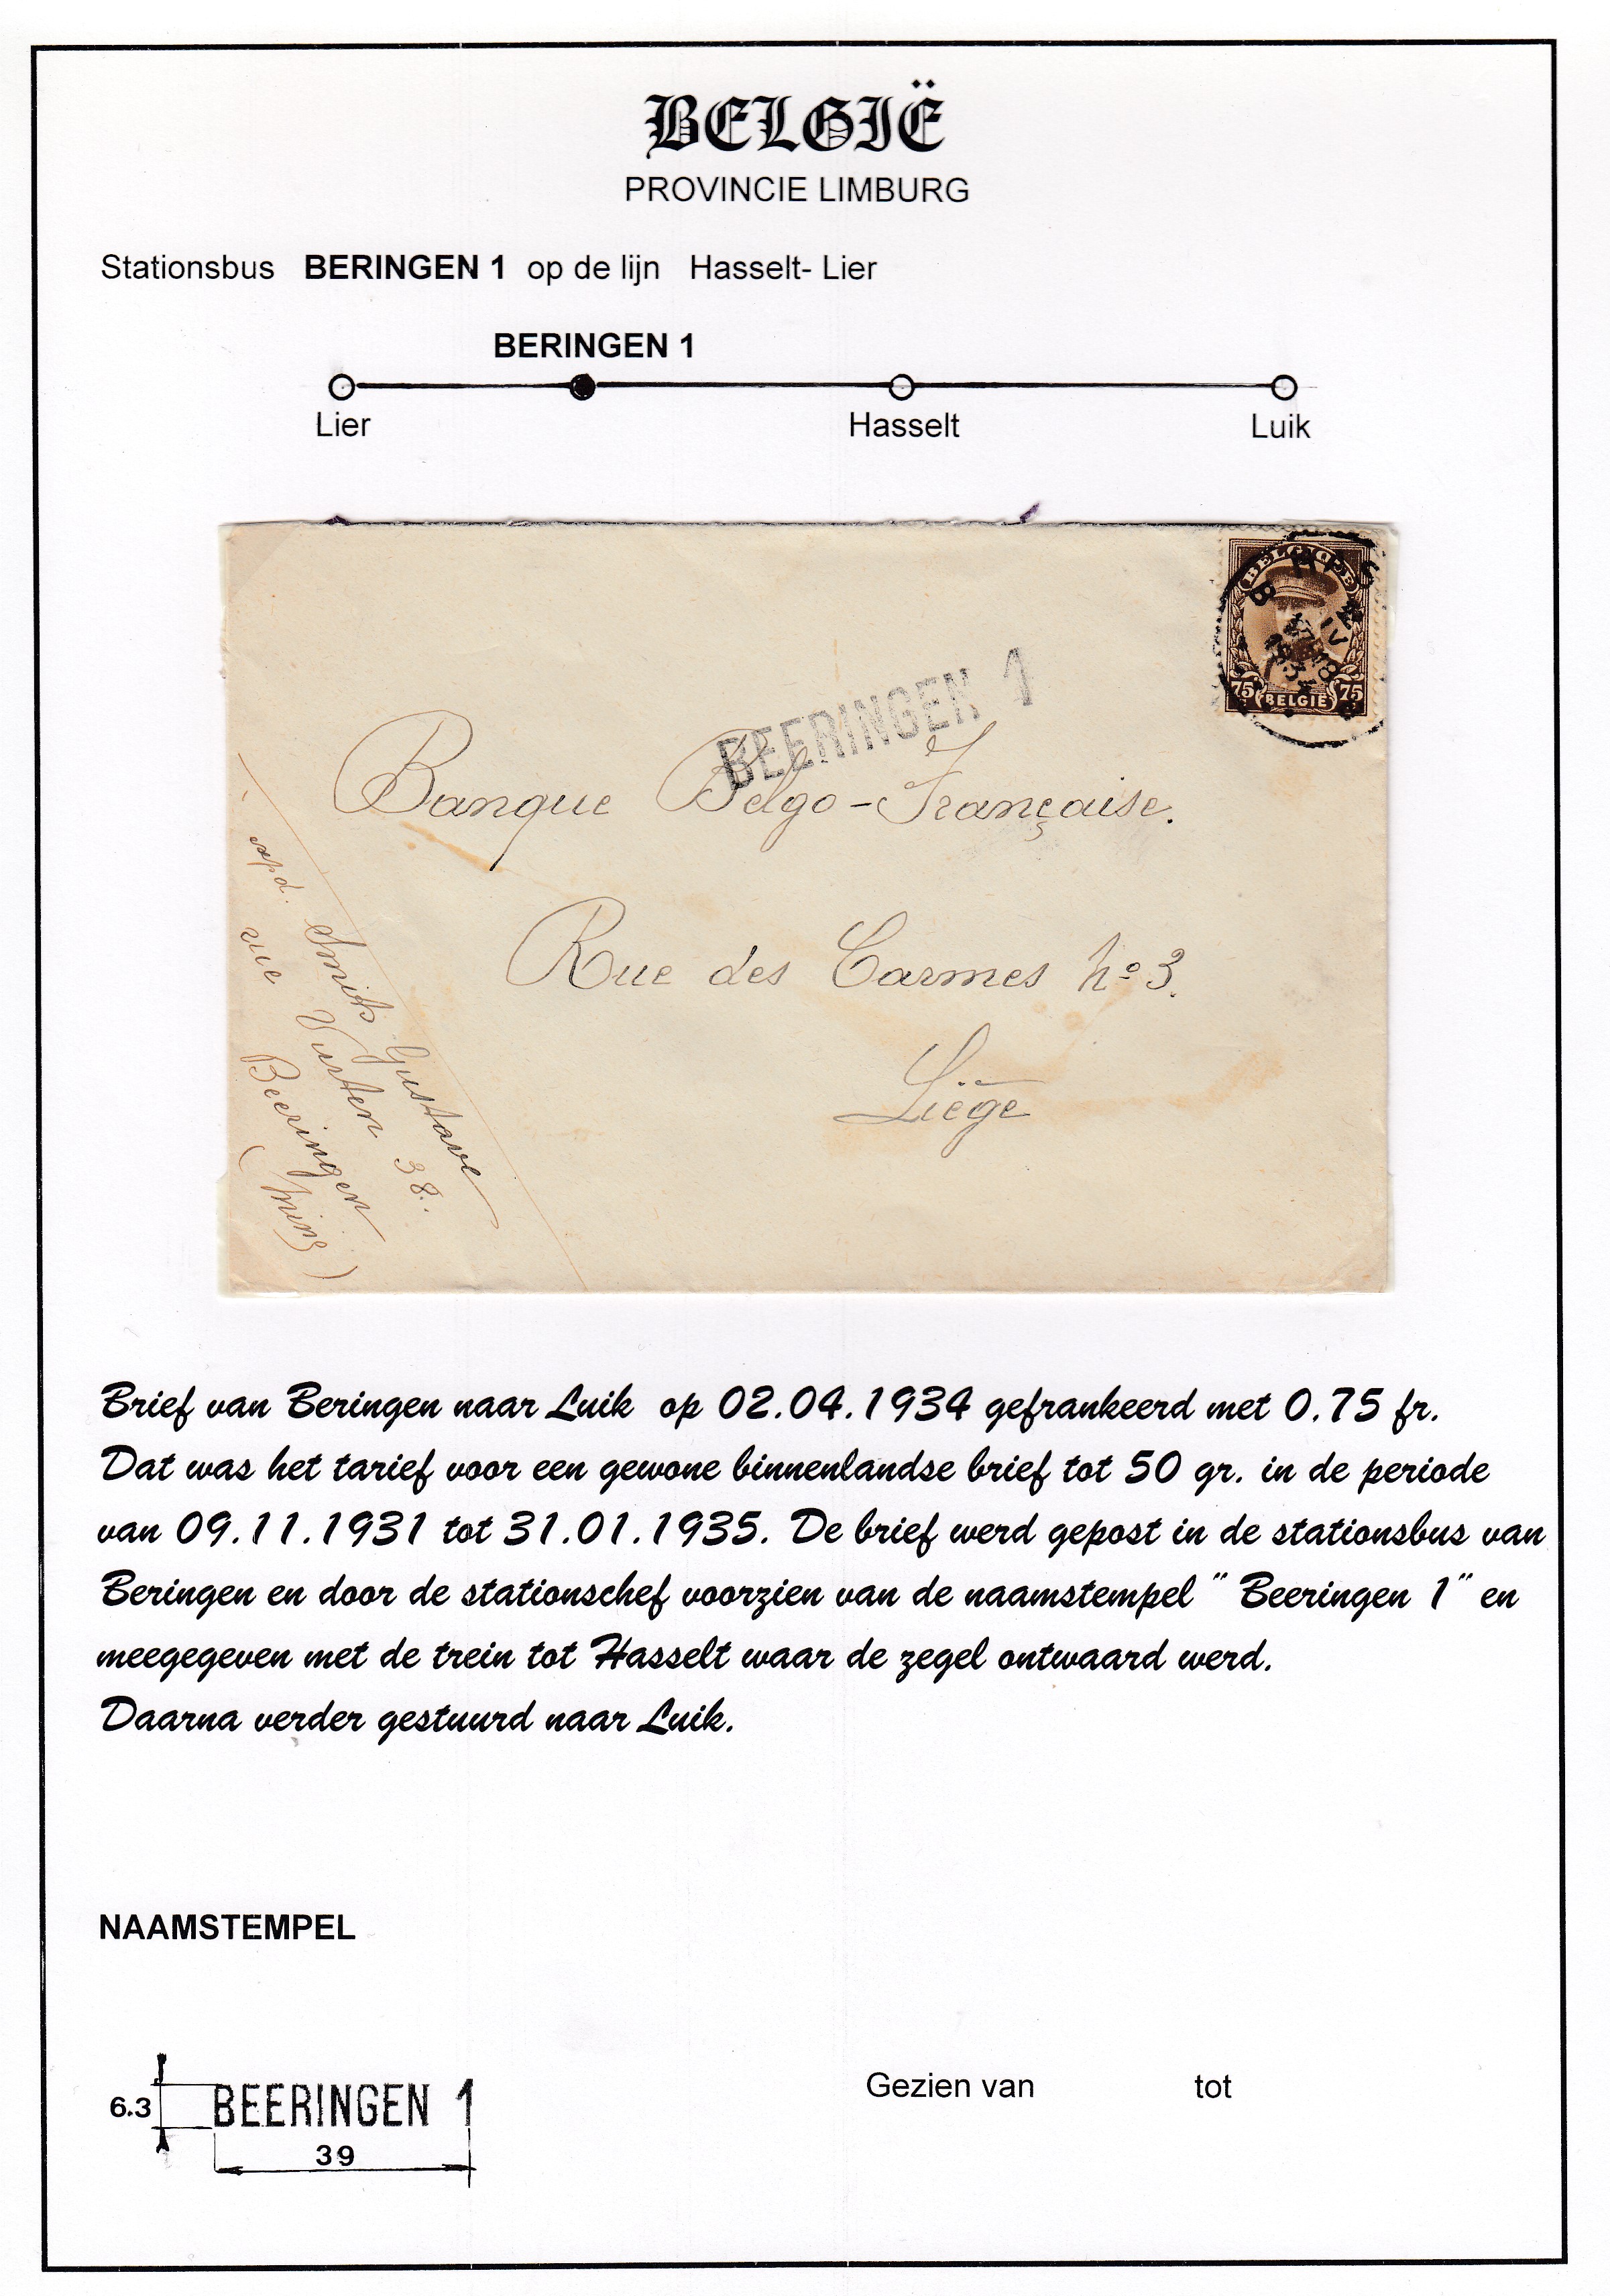 BELGIË
PROVINCIE LIMBURG
Stationsbus BERINGEN 1 op de lijn Hasselt- Lier
BERINGEN 1
Lier Hasselt Luik
BELGIQUE
75 BELGIË 75
BEERINGEN 1
Banque Belgo-Française.
Rue des Carmes No 3.
Liège
expd. Smits Gustave
rue Vurten 38.
Beeringen
(Mine)
Brief van Beringen naar Luik op 02.04.1934 gefrankeerd met 0.75 fr.
Dat was het tarief voor een gewone binnenlandse brief tot 50 gr. in de periode
van 09.11.1931 tot 31.01.1935. De brief werd gepost in de stationsbus van
Beringen en door de stationschef voorzien van de naamstempel " Beeringen 1" en
meegegeven met de trein tot Hasselt waar de zegel ontwaard werd.
Daarna verder gestuurd naar Luik.
NAAMSTEMPEL
6.3 BEERINGEN 1
39
Gezien van tot